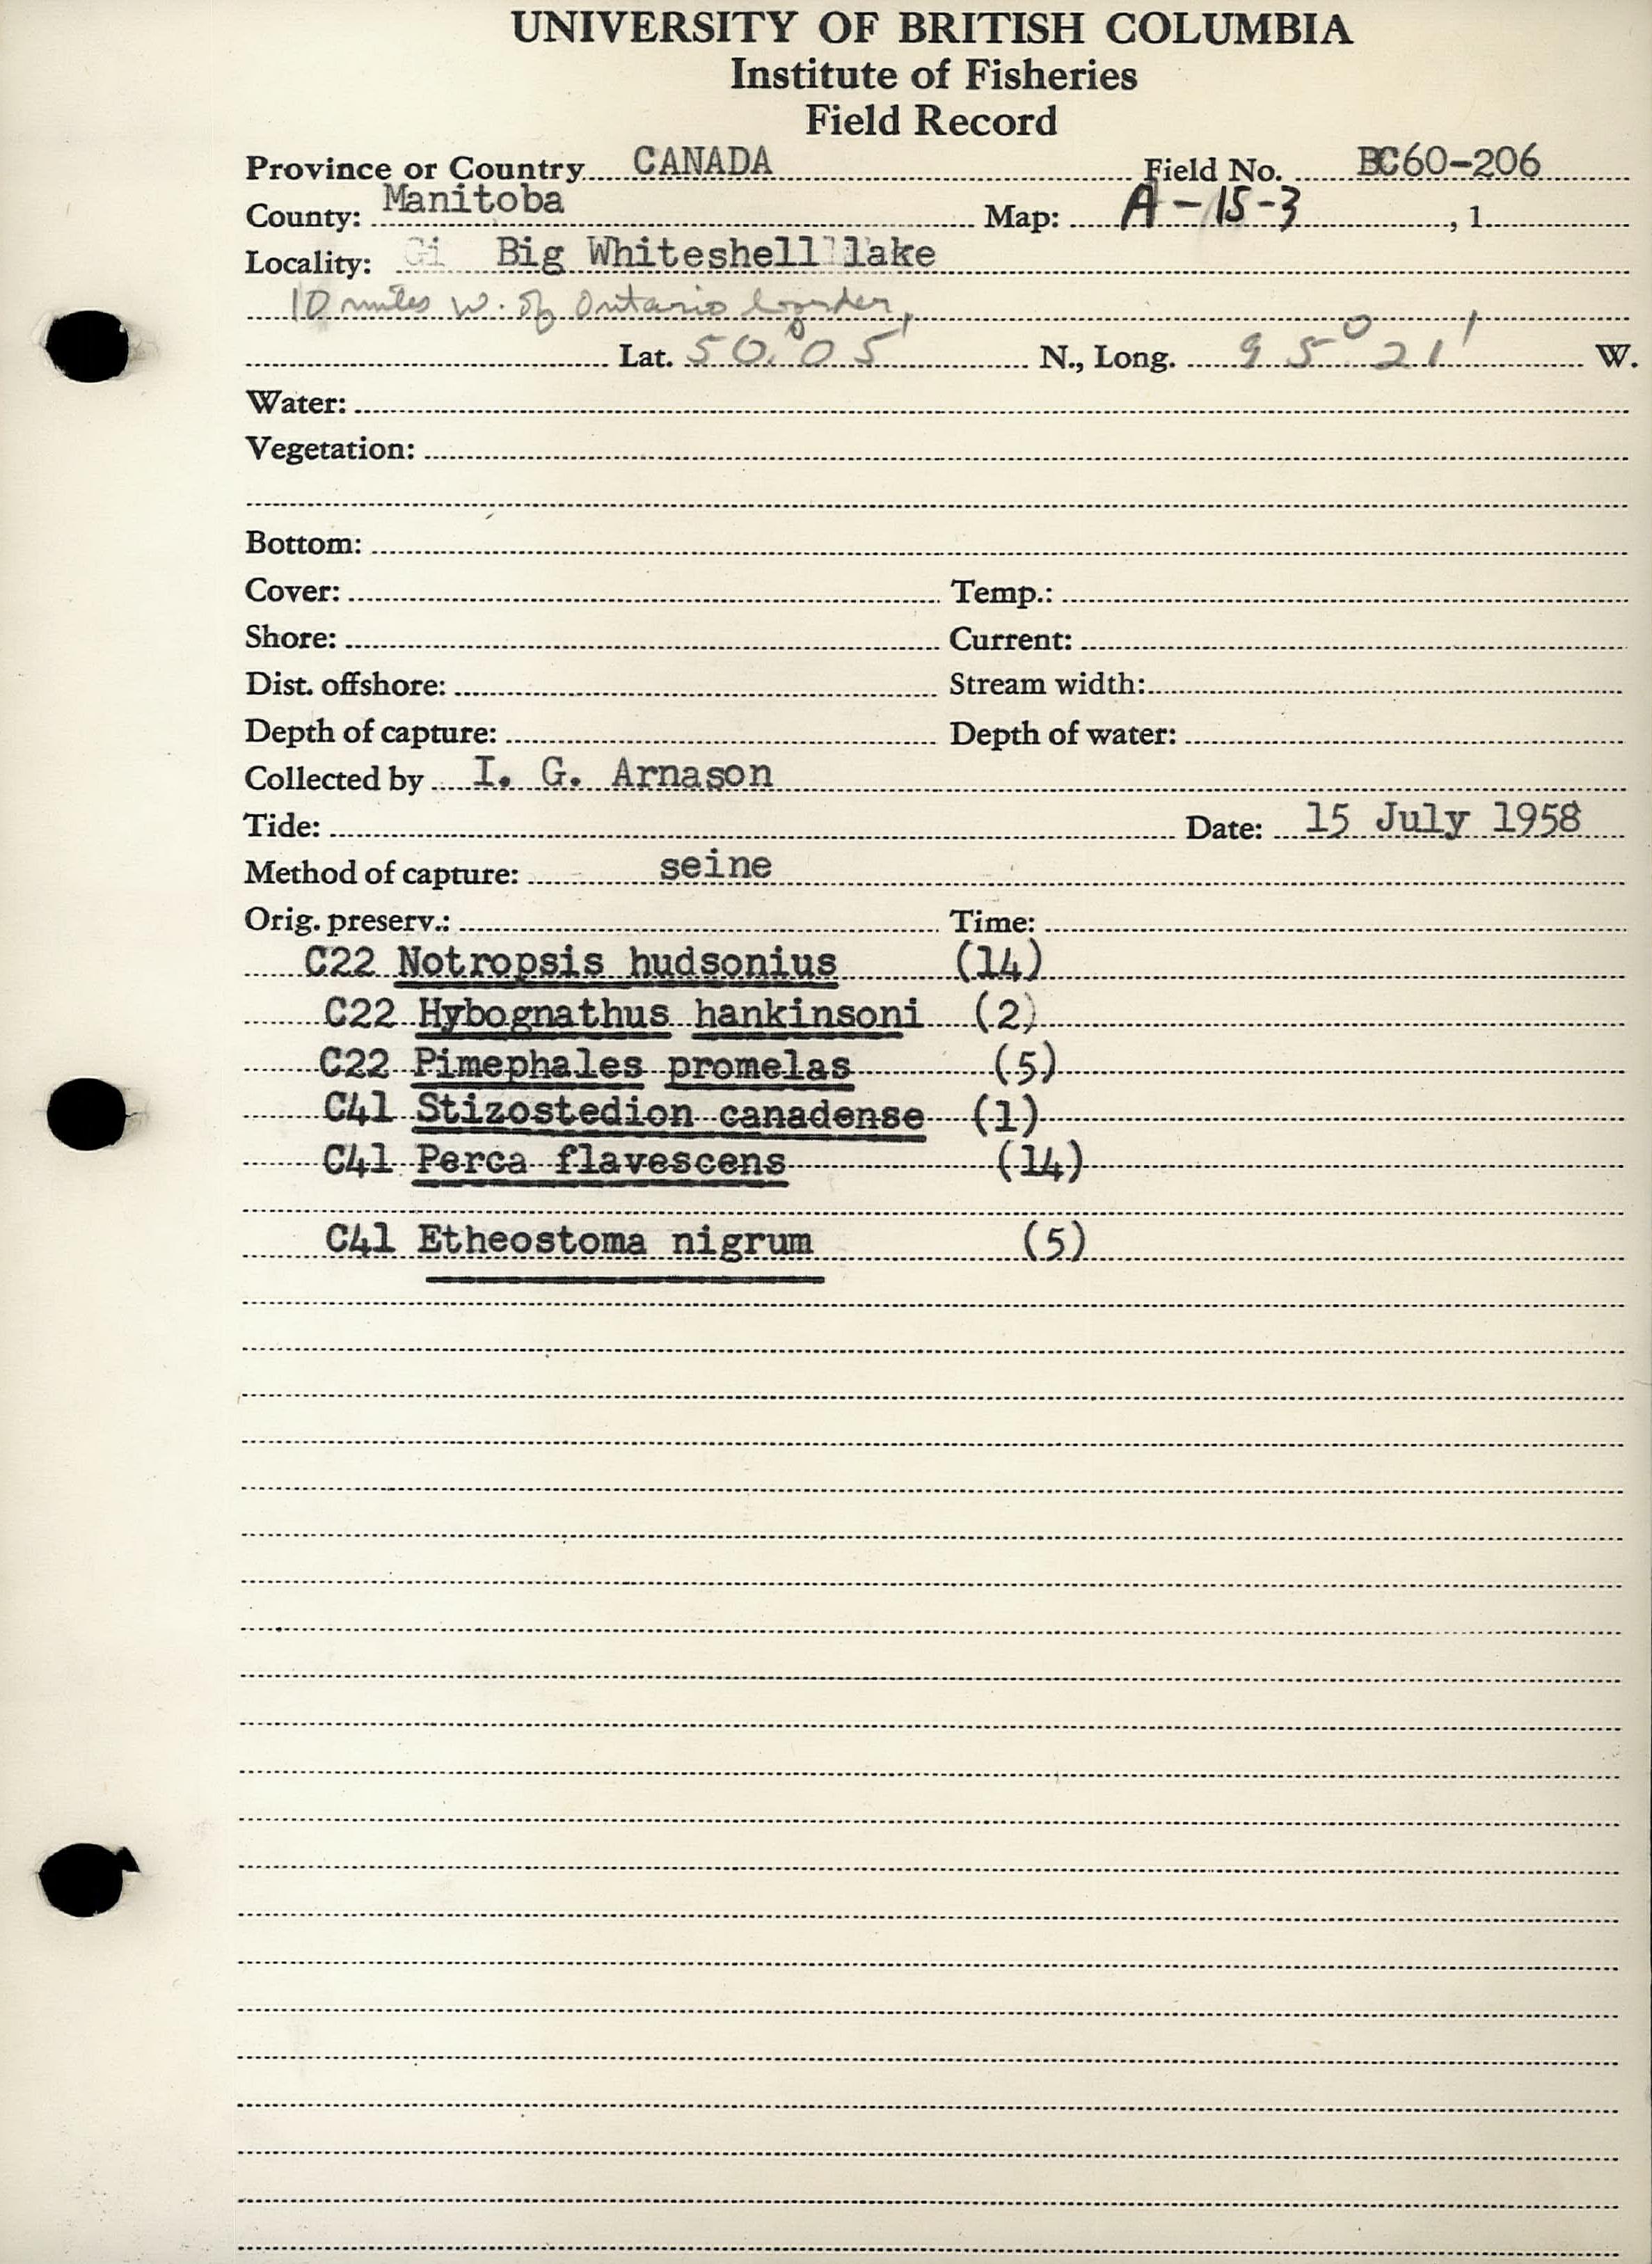 UNIVERSITY OF BRITISH COLUMBIA
Institute of Fisheries
Field Record
Province or Country CANADA Field No. BC60-206
County: Manitoba Map: A-15-3, 1
Locality: Big Whiteshell lake
10 miles w. of Ontario border,
Lat. 50°05' N., Long. 95°21' W.
Water:
Vegetation:
Bottom:
Cover: Temp.:
Shore: Current:
Dist. offshore: Stream width:
Depth of capture: Depth of water:
Collected by I. G. Arnason
Tide: Date: 15 July 1958
Method of capture: seine
Orig. preserv.: Time:
C22 Notropsis hudsonius (14)
C22 Hybognathus hankinsoni (2)
C22 Pimephales promelas (5)
C41 Stizostedion canadense (1)
C41 Perca flavescens (14)
C41 Etheostoma nigrum (5)